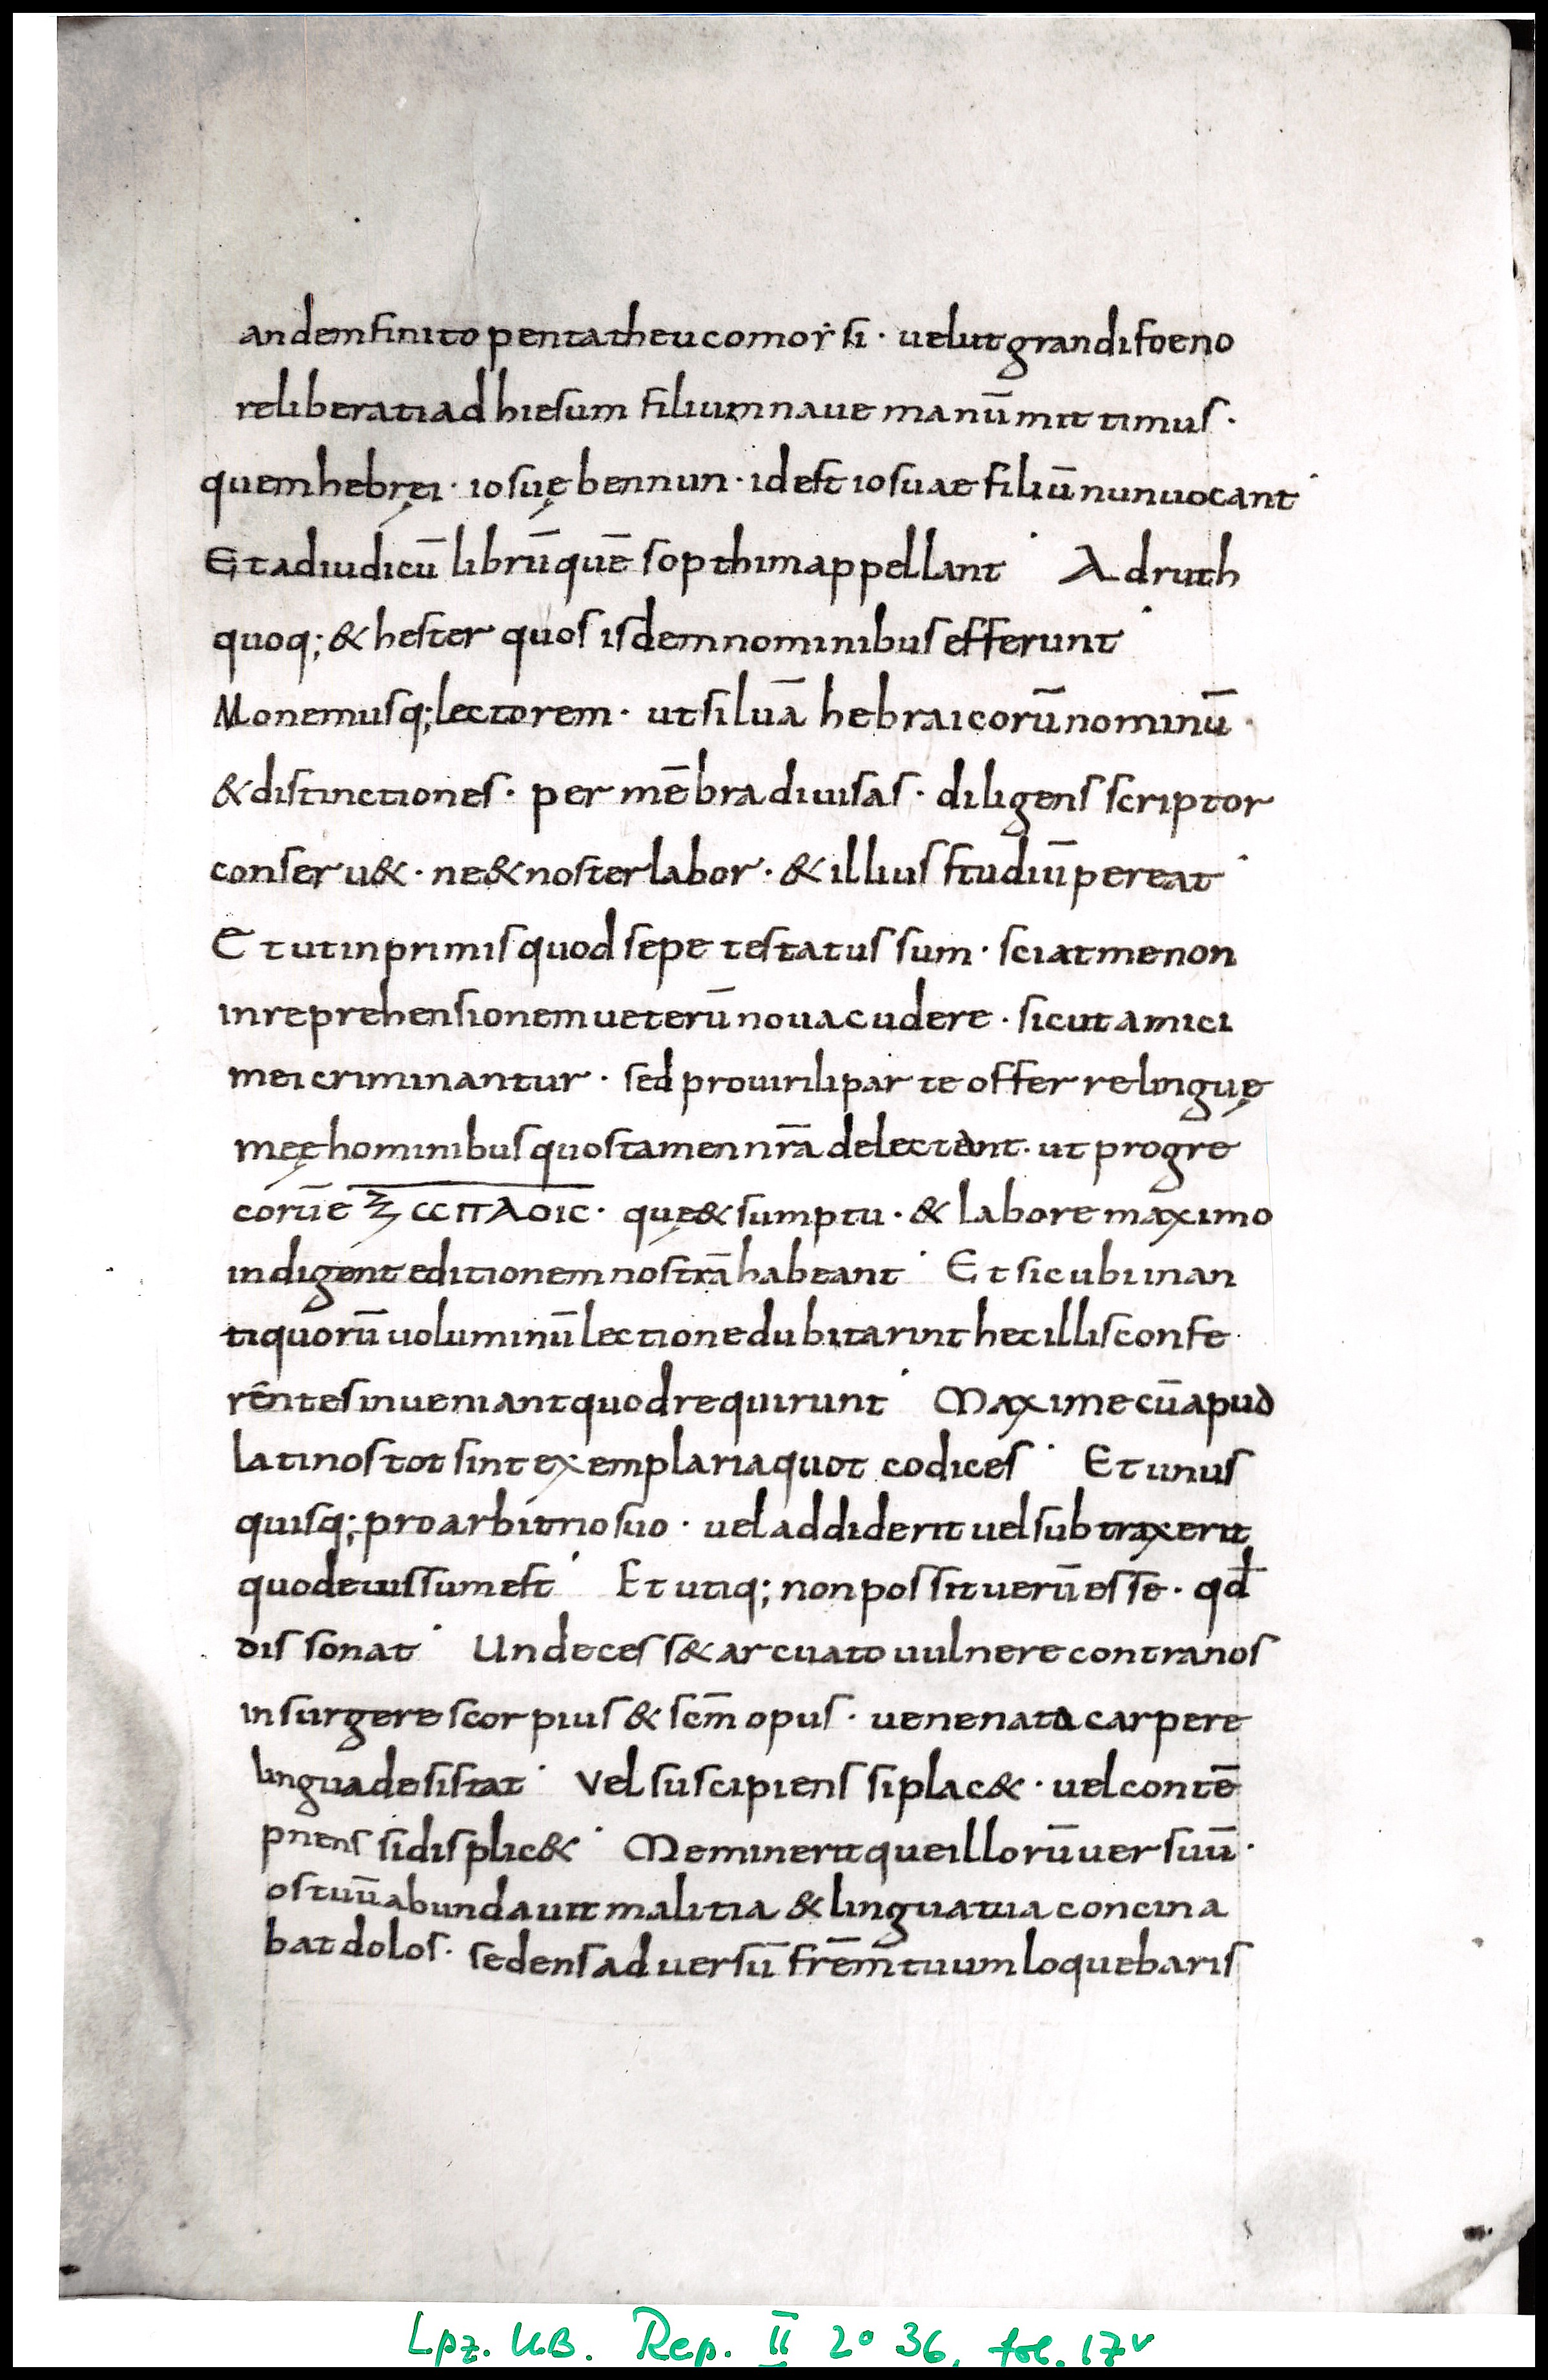 andem finito pentatheuco mo&#x27;si · uelut grandi foeno
re liberati ad hiesum filium naue manū mittimus ·
quem hebręi · iosuę bennun · id est iosuae filiū nun uocant ·
Et ad iudicū librū quē sopthim appellant · Ad ruth
quoq; &amp; hester quos isdem nominibus efferunt ·
Monemusq; lectorem · ut siluā hebraicorū nominū ·
&amp; distinctiones · per mēbra diuisas · diligens scriptor
conseru&amp; · ne &amp; noster labor · &amp; illius studiū pereat ·
Et ut inprimis quod sepe testatus sum · sciat me non
in reprehensionem ueterū noua cudere · sicut amici
mei criminantur · sed pro uirili parte offerre linguę
męę hominibus quos tamen nr̄a delectant · ut pro gre
corū e ΣΞ CCΠΛOIC · quę &amp; sumptu · &amp; labore maximo
indigent editionem nostrā habeant · Et sicubi in an
tiquorū uoluminū lectione dubitarint hec illis confe
rêntes inueniant quod requirunt · Maxime cū apud
latinos tot sint exemplaria quot codices · Et unus
quisq; pro arbitrio suo · uel addiderit uel subtraxerit
quod ei uissum est · Et utiq; non possit uerū esse · qd̄
dissonat · Unde cess&amp; arcuato uulnere contra nos
insurgere scorpius &amp; scm̄ opus · uenenata carpere
lingua desistat · Vel suscipiens si plac&amp; · uel contē
pnens si displic&amp; · Memineritque illorū uersuū ·
os tuū abundauit malitia &amp; lingua tua concina
bat dolos · sedens aduersū frēm tuum loquebaris
Lpz. UB. Rep. II 2° 36, fol. 17v